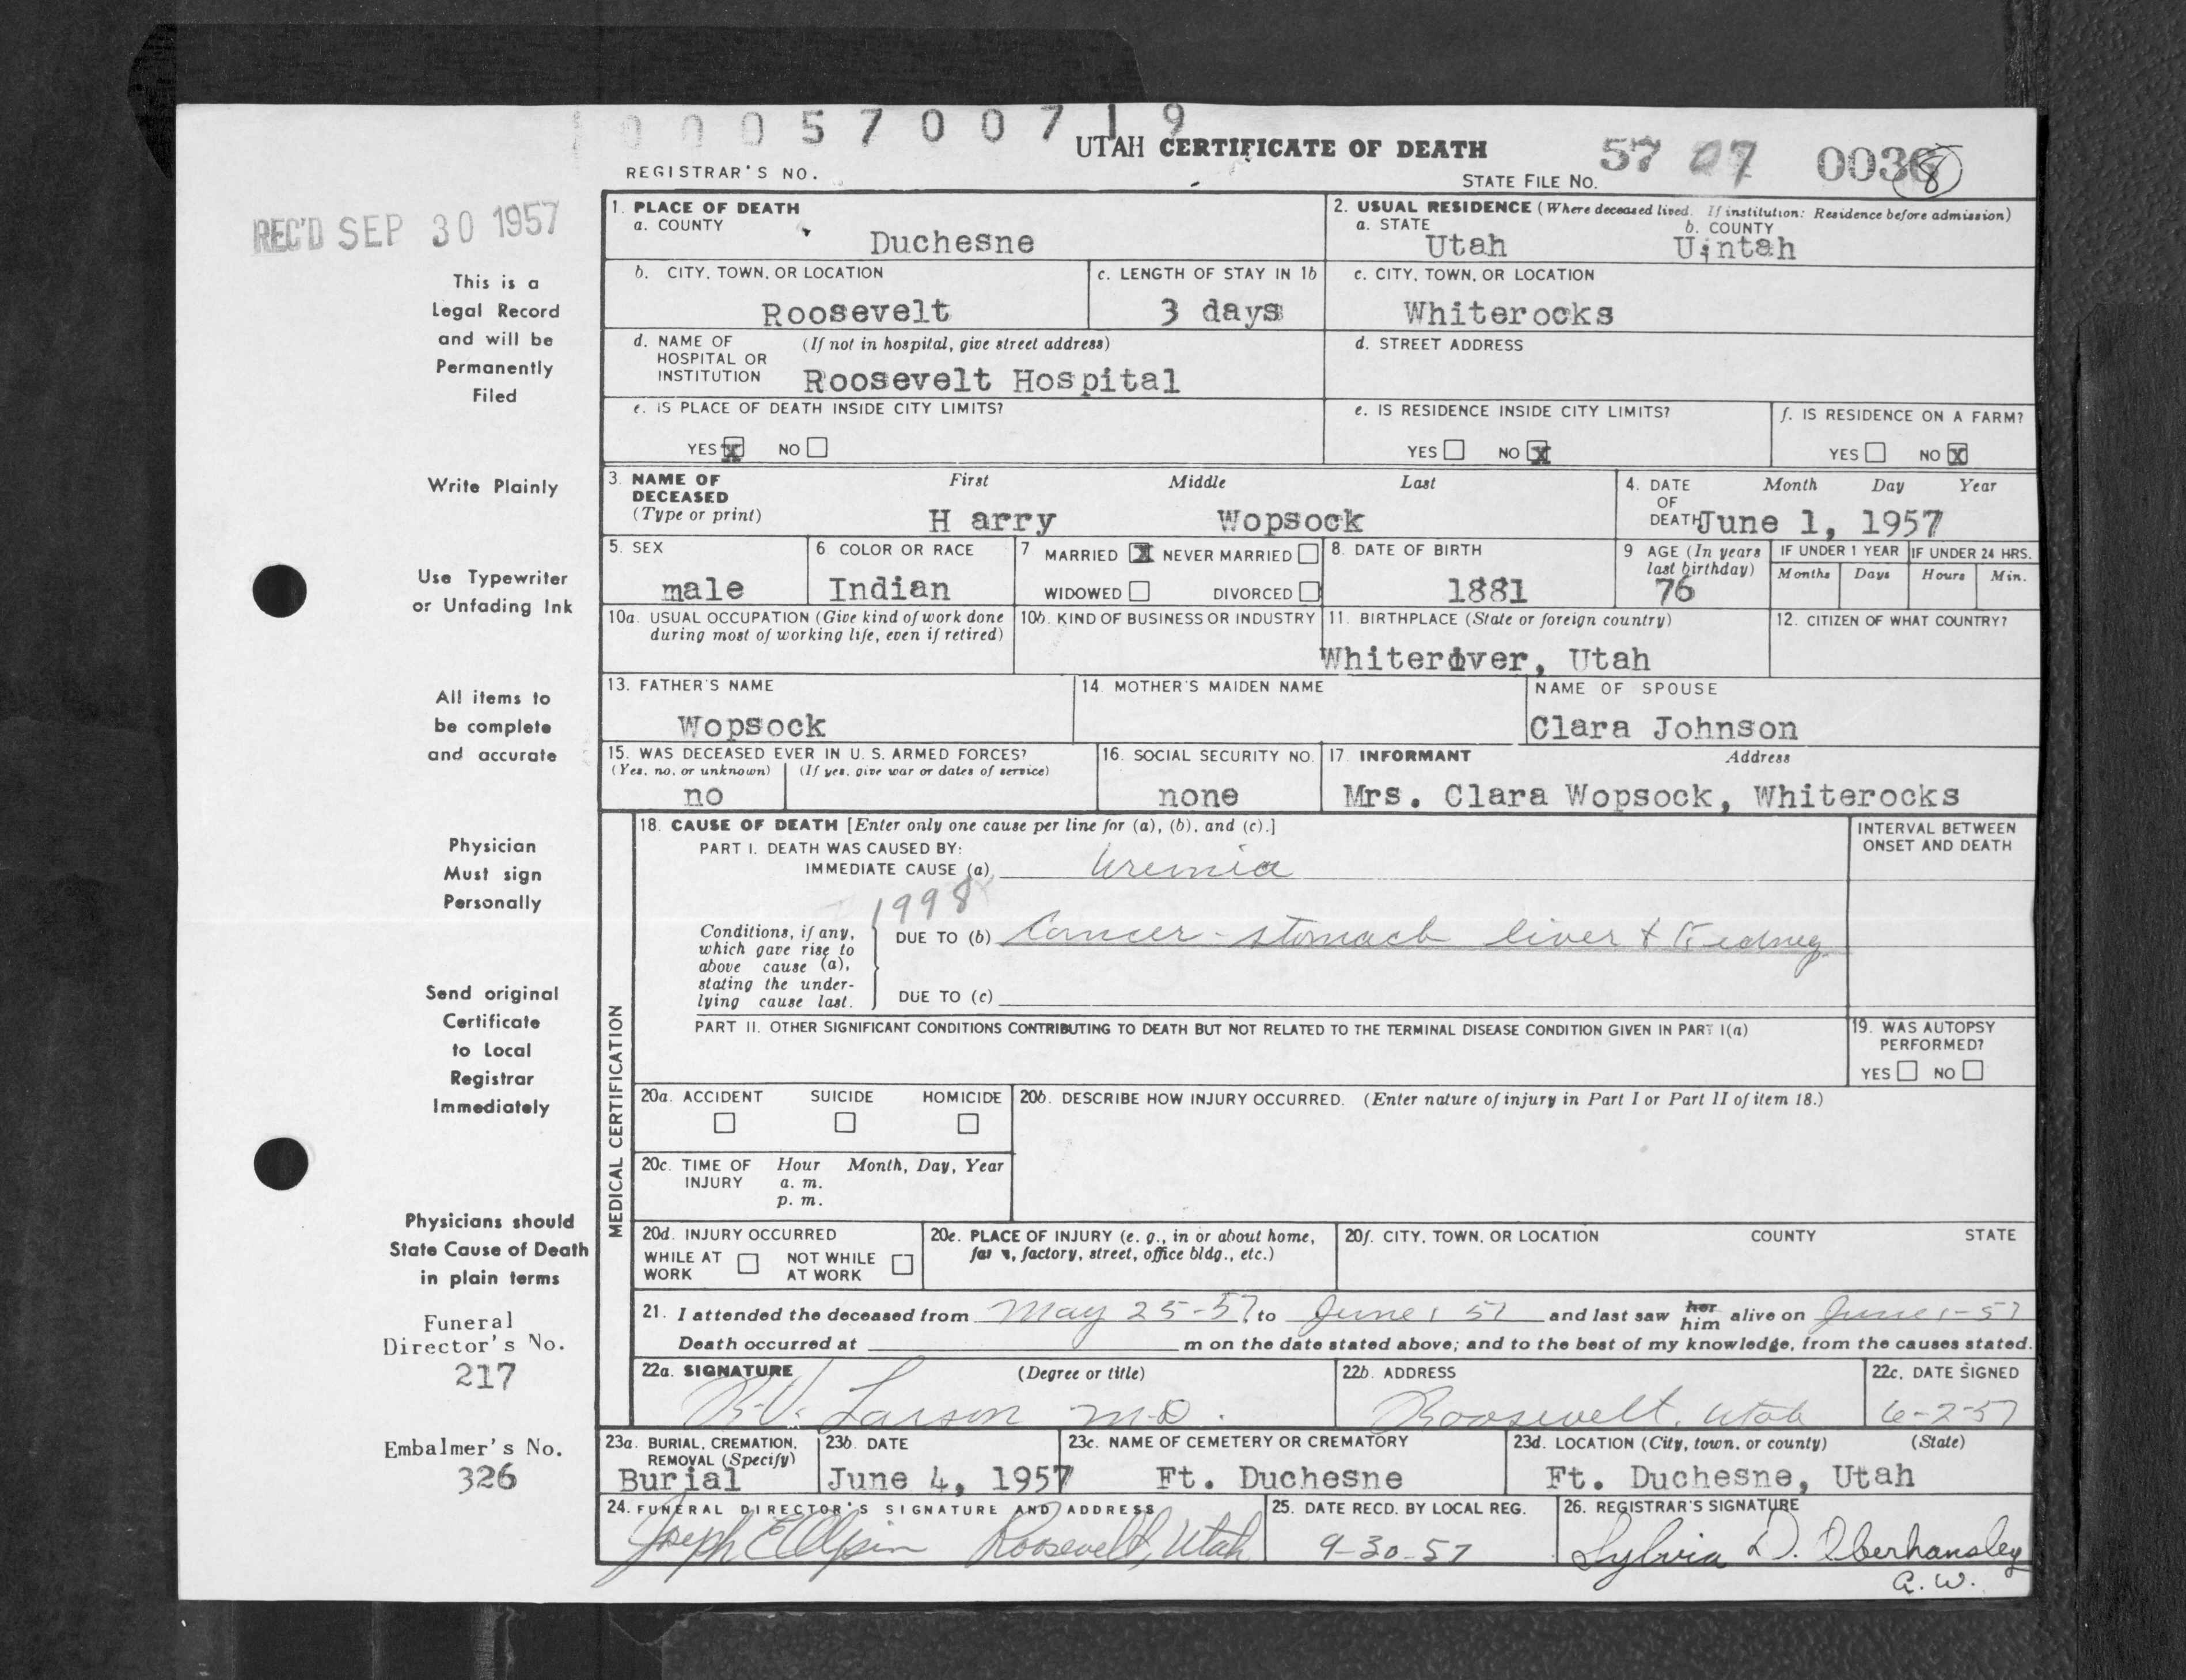 00057007 19
UTAH CERTIFICATE OF DEATH
57 07 0038
REGISTRAR'S NO.
STATE FILE NO.
REC'D SEP 30 1957
This is a
Legal Record
and will be
Permanently
Filed
Write Plainly
Use Typewriter
or Unfading Ink
All items to
be complete
and accurate
Physician
Must sign
Personally
Send original
Certificate
to Local
Registrar
Immediately
Physicians should
State Cause of Death
in plain terms
Funeral
Director's No.
217
Embalmer's No.
326
1. PLACE OF DEATH
a. COUNTY
Duchesne
2. USUAL RESIDENCE (Where deceased lived. If institution: Residence before admission)
a. STATE
Utah
b. COUNTY
Uintah
b. CITY, TOWN, OR LOCATION
Roosevelt
c. LENGTH OF STAY IN 1b
3 days
c. CITY, TOWN, OR LOCATION
Whiterocks
d. NAME OF (If not in hospital, give street address)
HOSPITAL OR
INSTITUTION
Roosevelt Hospital
d. STREET ADDRESS
e. IS PLACE OF DEATH INSIDE CITY LIMITS?
YES X NO
e. IS RESIDENCE INSIDE CITY LIMITS?
YES NO X
f. IS RESIDENCE ON A FARM?
YES NO X
3. NAME OF DECEASED
(Type or print)
First Middle Last
H arry Wopsock
4. DATE OF DEATH
Month Day Year
June 1, 1957
5. SEX
male
6. COLOR OR RACE
Indian
7 MARRIED X NEVER MARRIED
WIDOWED DIVORCED
8. DATE OF BIRTH
1881
9 AGE (In years
last birthday)
76
IF UNDER 1 YEAR
Months Days
IF UNDER 24 HRS.
Hours Min.
10a. USUAL OCCUPATION (Give kind of work done
during most of working life, even if retired)
10b. KIND OF BUSINESS OR INDUSTRY
11. BIRTHPLACE (State or foreign country)
Whiteriver, Utah
12. CITIZEN OF WHAT COUNTRY?
13. FATHER'S NAME
Wopsock
14. MOTHER'S MAIDEN NAME
NAME OF SPOUSE
Clara Johnson
15. WAS DECEASED EVER IN U. S. ARMED FORCES?
(Yes, no, or unknown) (If yes, give war or dates of service)
no
16. SOCIAL SECURITY NO.
none
17. INFORMANT Address
Mrs. Clara Wopsock, Whiterocks
MEDICAL CERTIFICATION
18. CAUSE OF DEATH [Enter only one cause per line for (a), (b), and (c).]
PART I. DEATH WAS CAUSED BY:
IMMEDIATE CAUSE (a) Uremia
INTERVAL BETWEEN
ONSET AND DEATH
1998
Conditions, if any,
which gave rise to
above cause (a),
stating the under-
lying cause last.
DUE TO (b) Cancer - stomach liver & Kidney
DUE TO (c)
PART II. OTHER SIGNIFICANT CONDITIONS CONTRIBUTING TO DEATH BUT NOT RELATED TO THE TERMINAL DISEASE CONDITION GIVEN IN PART I(a)
19. WAS AUTOPSY
PERFORMED?
YES NO
20a. ACCIDENT SUICIDE HOMICIDE
20b. DESCRIBE HOW INJURY OCCURRED. (Enter nature of injury in Part I or Part II of item 18.)
20c. TIME OF INJURY
Hour Month, Day, Year
a. m.
p. m.
20d. INJURY OCCURRED
WHILE AT WORK
NOT WHILE AT WORK
20e. PLACE OF INJURY (e. g., in or about home,
farm, factory, street, office bldg., etc.)
20f. CITY, TOWN, OR LOCATION COUNTY STATE
21. I attended the deceased from May 25-57, to June 1 57 and last saw her him alive on June 1-57
Death occurred at m on the date stated above; and to the best of my knowledge, from the causes stated.
22a. SIGNATURE (Degree or title)
R.V. Larson M.D.
22b. ADDRESS
Roosevelt, Utah
22c. DATE SIGNED
6-2-57
23a. BURIAL, CREMATION,
REMOVAL (Specify)
Burial
23b. DATE
June 4, 1957
23c. NAME OF CEMETERY OR CREMATORY
Ft. Duchesne
23d. LOCATION (City, town, or county) (State)
Ft. Duchesne, Utah
24. FUNERAL DIRECTOR'S SIGNATURE AND ADDRESS
Joseph E Olpin Roosevelt, Utah
25. DATE RECD. BY LOCAL REG.
9-30-57
26. REGISTRAR'S SIGNATURE
Sylvia D. Oberhansley
a.w.